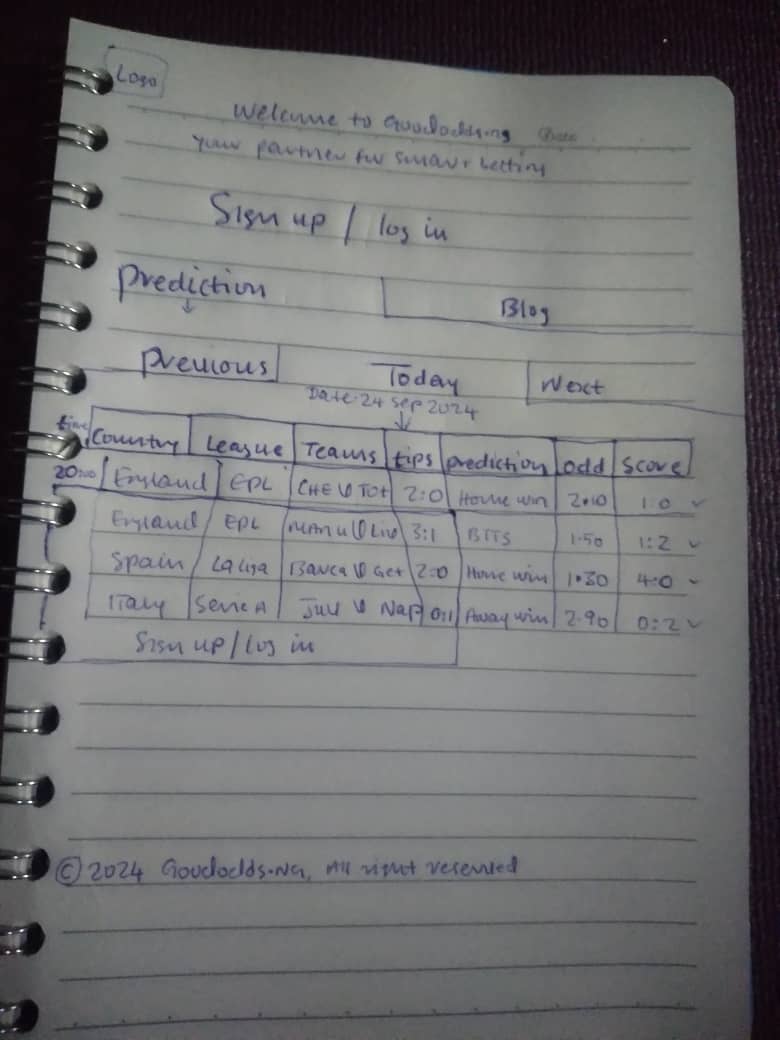 Logo
Welcome to Goododds.ng
Your partner for smart betting
Sign up / log in
Prediction Blog
Previous Today Next
Date: 24 Sep 2024
time Country League Teams tips prediction odd Score
20:00 England EPL CHE V TOT 2:0 Home win 2.10 1:0 ✓
England EPL MANU V LIV 3:1 BTTS 1.50 1:2 ✓
Spain Laliga Barca V Get 2:0 Home win 1.30 4:0 ✓
Italy Serie A JUV V Nap 0:1 Away win 2.90 0:2 ✓
Sign up / Log in
© 2024 Goododds.NG, All right reserved